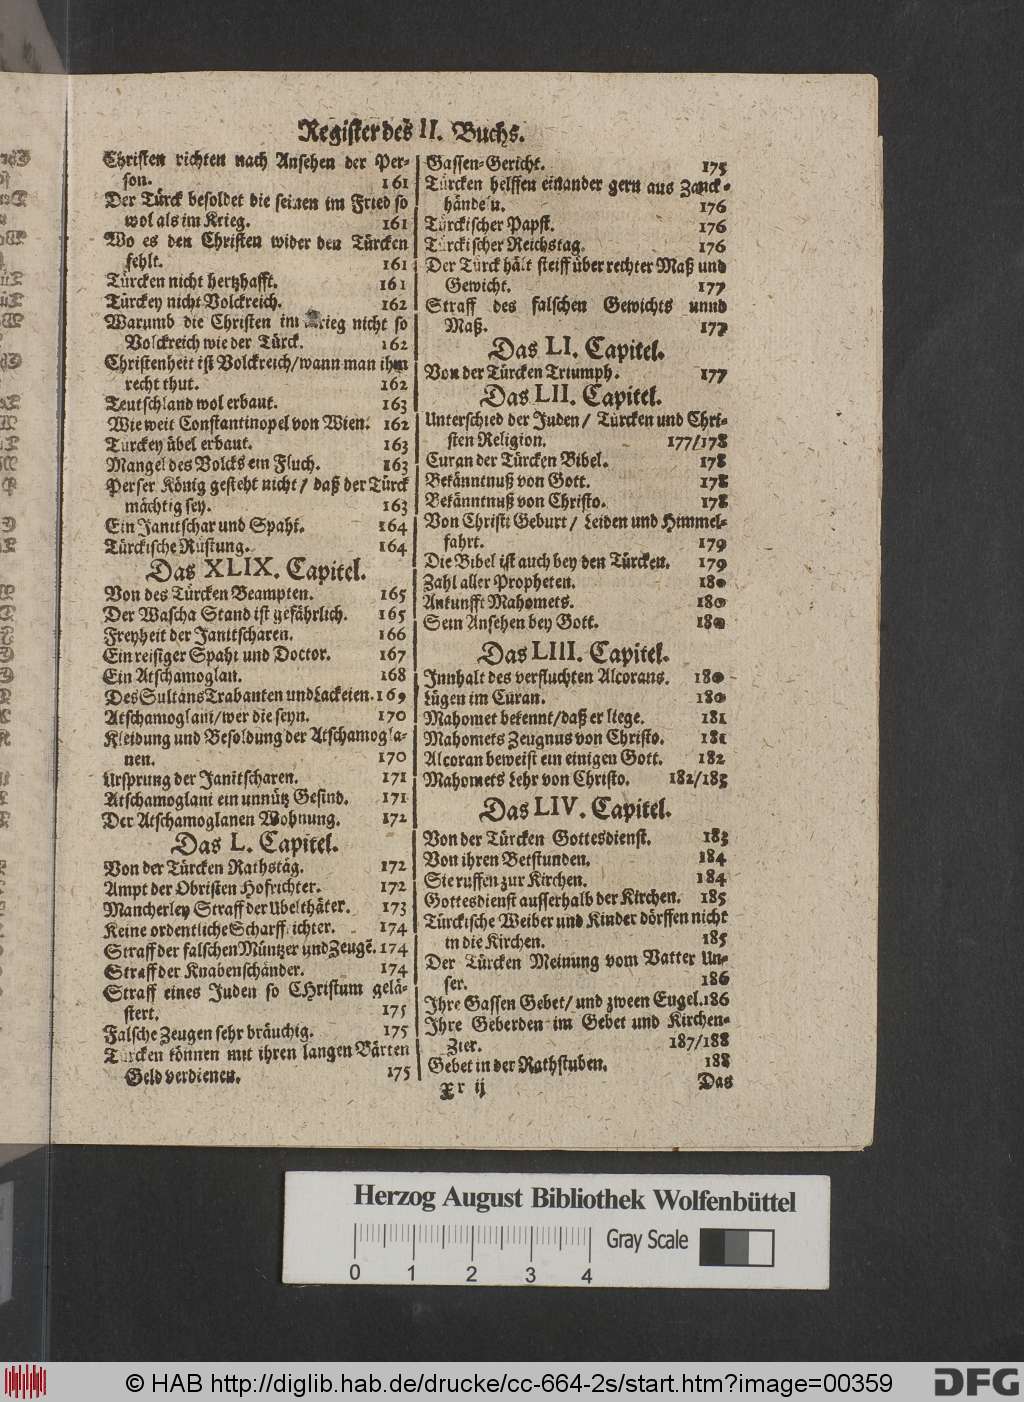 Register des II. Buchs.
Christen richten nach Ansehen der Per-
son. 161
Der Türck besoldet die seinen im Fried so
wol als im Krieg. 161
Wo es den Christen wider den Türcken
fehlt. 161
Türcken nicht hertzhafft. 161
Türckey nicht Volckreich. 162
Warumb die Christen im Krieg nicht so
Volckreich wie der Türck. 162
Christenheit ist Volckreich/wann man ihm
recht thut. 162
Teutschland wol erbaut. 163
Wie weit Constantinopel von Wien. 162
Türckey übel erbaut. 163
Mangel des Volcks ein Fluch. 163
Perser König gesteht nicht / daß der Türck
mächtig sey. 163
Ein Janitschar und Spahi. 164
Türckische Rüstung. 164
Das XLIX. Capitel.
Von des Türcken Beampten. 165
Der Wascha Stand ist gefährlich. 165
Freyheit der Janitscharen. 166
Ein reisiger Spahi und Doctor. 167
Ein Atschamoglan. 168
Des Sultans Trabanten und Lackeien. 169
Atschamoglani/wer die seyn. 170
Kleidung und Besoldung der Atschamogla-
nen. 170
Ursprung der Janitscharen. 171
Atschamoglani ein unnütz Gesind. 171
Der Atschamoglanen Wohnung. 172
Das L. Capitel.
Von der Türcken Rathstäg. 172
Ampt der Obristen Hofrichter. 172
Mancherley Straff der Ubelthäter. 173
Keine ordentliche Scharffrichter. 174
Straff der falschen Müntzer und Zeugē. 174
Straff der Knabenschänder. 174
Straff eines Juden so CHristum gelä-
stert. 175
Falsche Zeugen sehr bräuchig. 175
Türcken können mit ihren langen Bärten
Geld verdienen. 175
Gassen-Gericht. 175
Türcken helffen einander gern aus Zanck-
händeln. 176
Türckischer Papst. 176
Türckischer Reichstag. 176
Der Türck hält steiff über rechter Maß und
Gewicht. 177
Straff des falschen Gewichts unnd
Maß. 177
Das LI. Capitel.
Von der Türcken Triumph. 177
Das LII. Capitel.
Unterschied der Juden / Türcken und Chri-
sten Religion. 177/178
Curan der Türcken Bibel. 178
Bekänntnuß von Gott. 178
Bekänntnuß von Christo. 178
Von Christi Geburt / Leiden und Himmel-
fahrt. 179
Die Bibel ist auch bey den Türcken. 179
Zahl aller Propheten. 180
Ankunfft Mahomets. 180
Sein Ansehen bey Gott. 180
Das LIII. Capitel.
Innhalt des verfluchten Alcorans. 180
Lügen im Curan. 180
Mahomet bekennt/daß er liege. 181
Mahomets Zeugnus von Christo. 181
Alcoran beweist ein einigen Gott. 182
Mahomets Lehr von Christo. 182/183
Das LIV. Capitel.
Von der Türcken Gottesdienst. 183
Von ihren Betstunden. 184
Sie ruffen zur Kirchen. 184
Gottesdienst ausserhalb der Kirchen. 185
Türckische Weiber und Kinder dörffen nicht
in die Kirchen. 185
Der Türcken Meinung vom Vatter Un-
ser. 186
Ihre Gassen Gebet/ und zween Eugel. 186
Ihre Geberden im Gebet und Kirchen-
Zier. 187/188
Gebet in der Rathstuben. 188
Xr ij
Das
Herzog August Bibliothek Wolfenbüttel
Gray Scale
0 1 2 3 4
© HAB http://diglib.hab.de/drucke/cc-664-2s/start.htm?image=00359
DFG